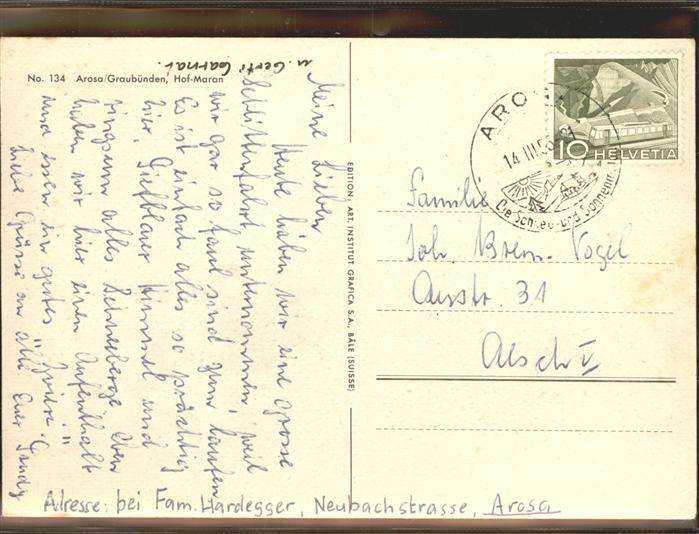 No. 134 Arosa/Graubünden, Hof-Maran
Meine Lieben
Heute haben wir eine grosse
Schlittenfahrt unternommen, weil
wir gar so faul sind zum laufen
Es ist einfach alles so prächtig
hier. Tiefblauer Himmel und
ringsum alles Schneeberge. Eben
haben wir hier einen Aufenthalt
und essen ein gutes "Zvieri"
Liebe Grüsse an alle Euer
u. Gerti
EDITION, ART. INSTITUT GRAFICA S.A., BÂLE (SUISSE)
AROSA
14.III.5
HELVETIA
10
Familie
Joh. Vogel
Austr. 31
Adresse: bei Fam. Hardegger, Neubachstrasse, Arosa